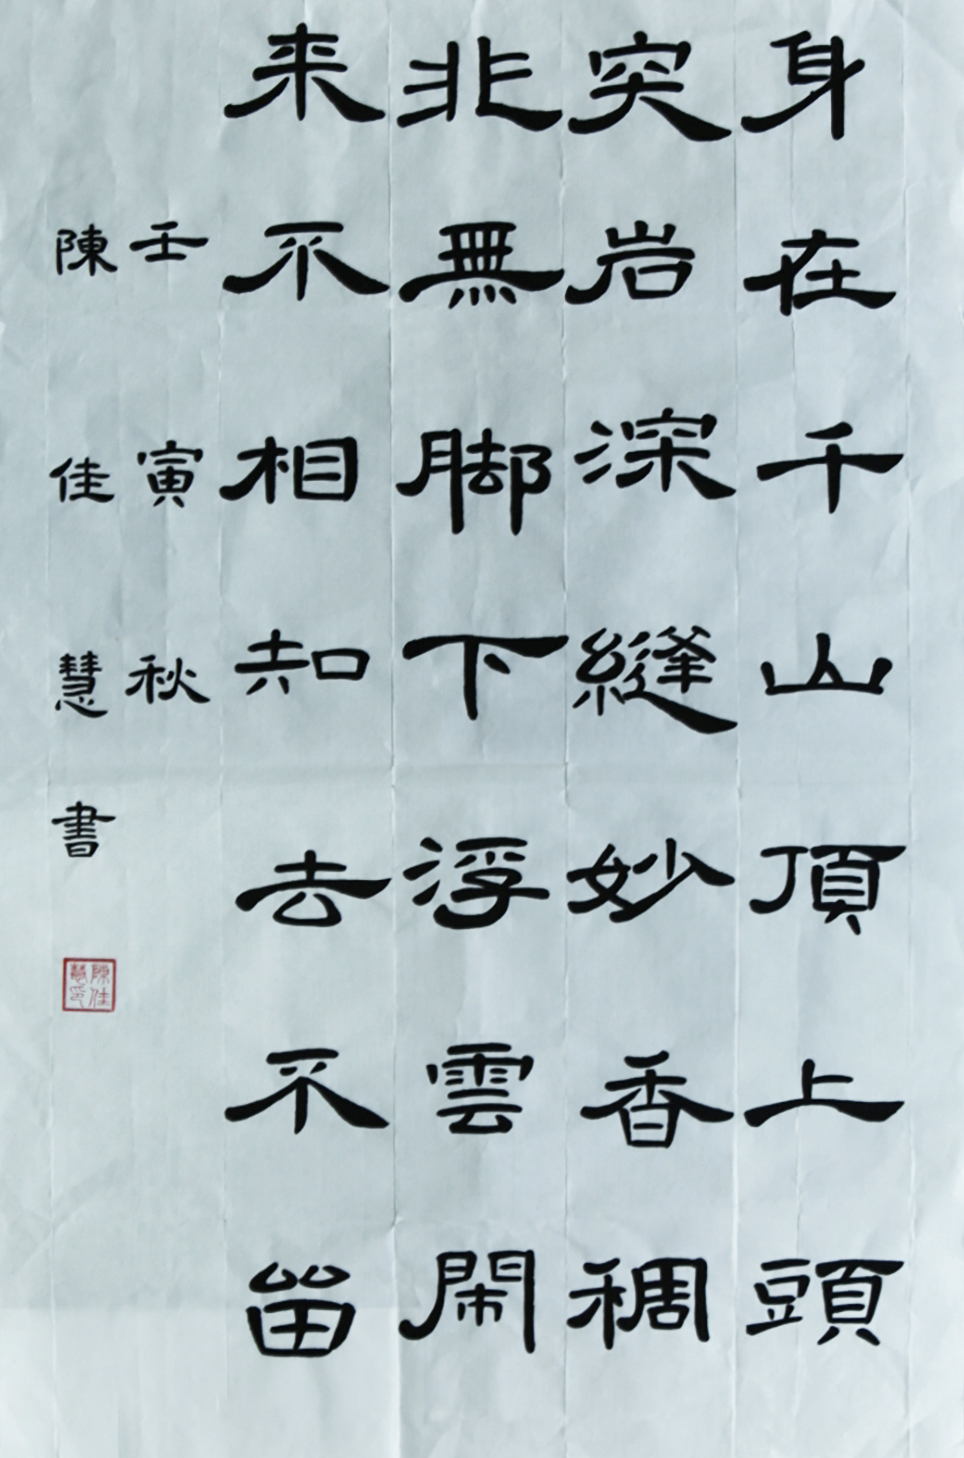 身在千山頂上頭
突岩深縫妙香稠
非無脚下浮雲閙
来不相知去不留
壬寅秋
陳佳慧書
陳佳慧印